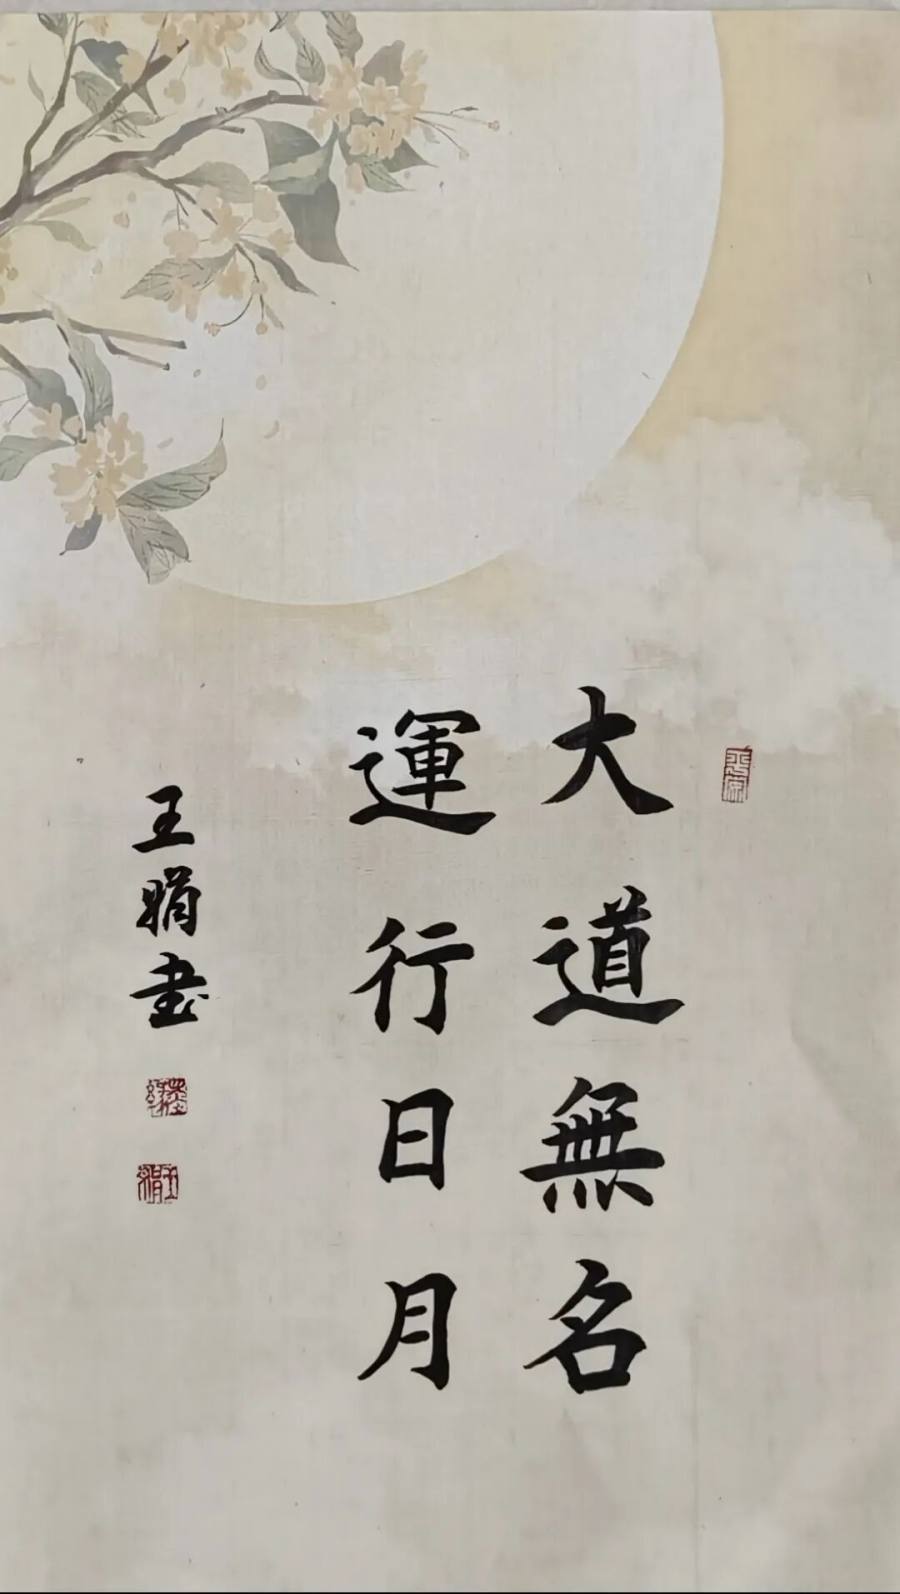 大道無名
運行日月
王娟書